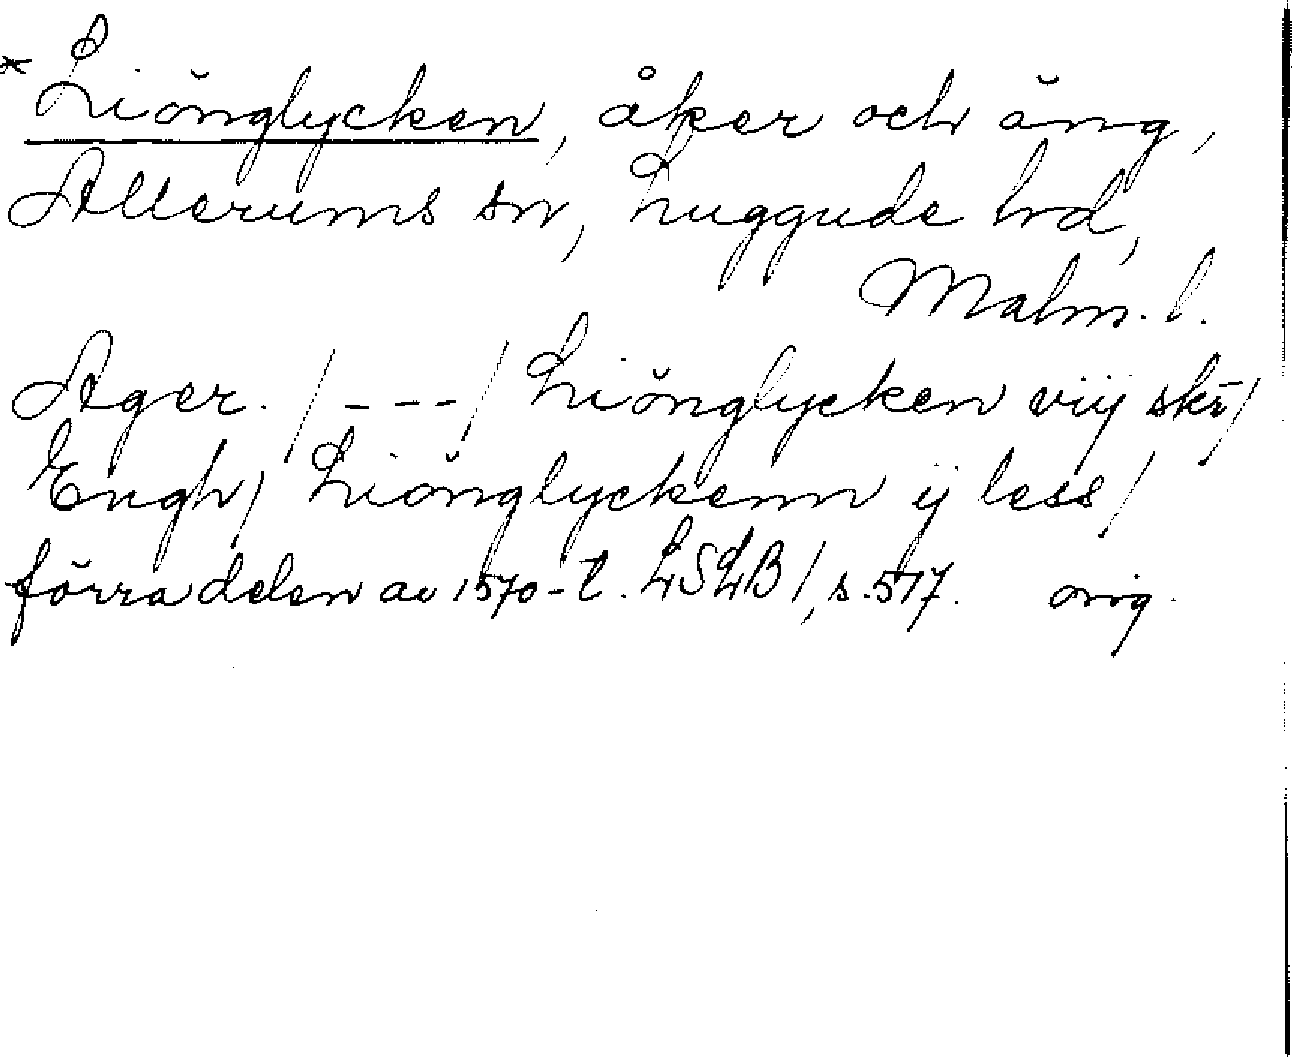 * Liönglycken, åker och äng,
Allerums sn, Luggude hd,
Malm. l.
Ager. / - - - / Liönglycken viij skr /
Engh / Liönglyckenn ij less /
förra delen av 1570-t. LSLB I, s. 517. orig.